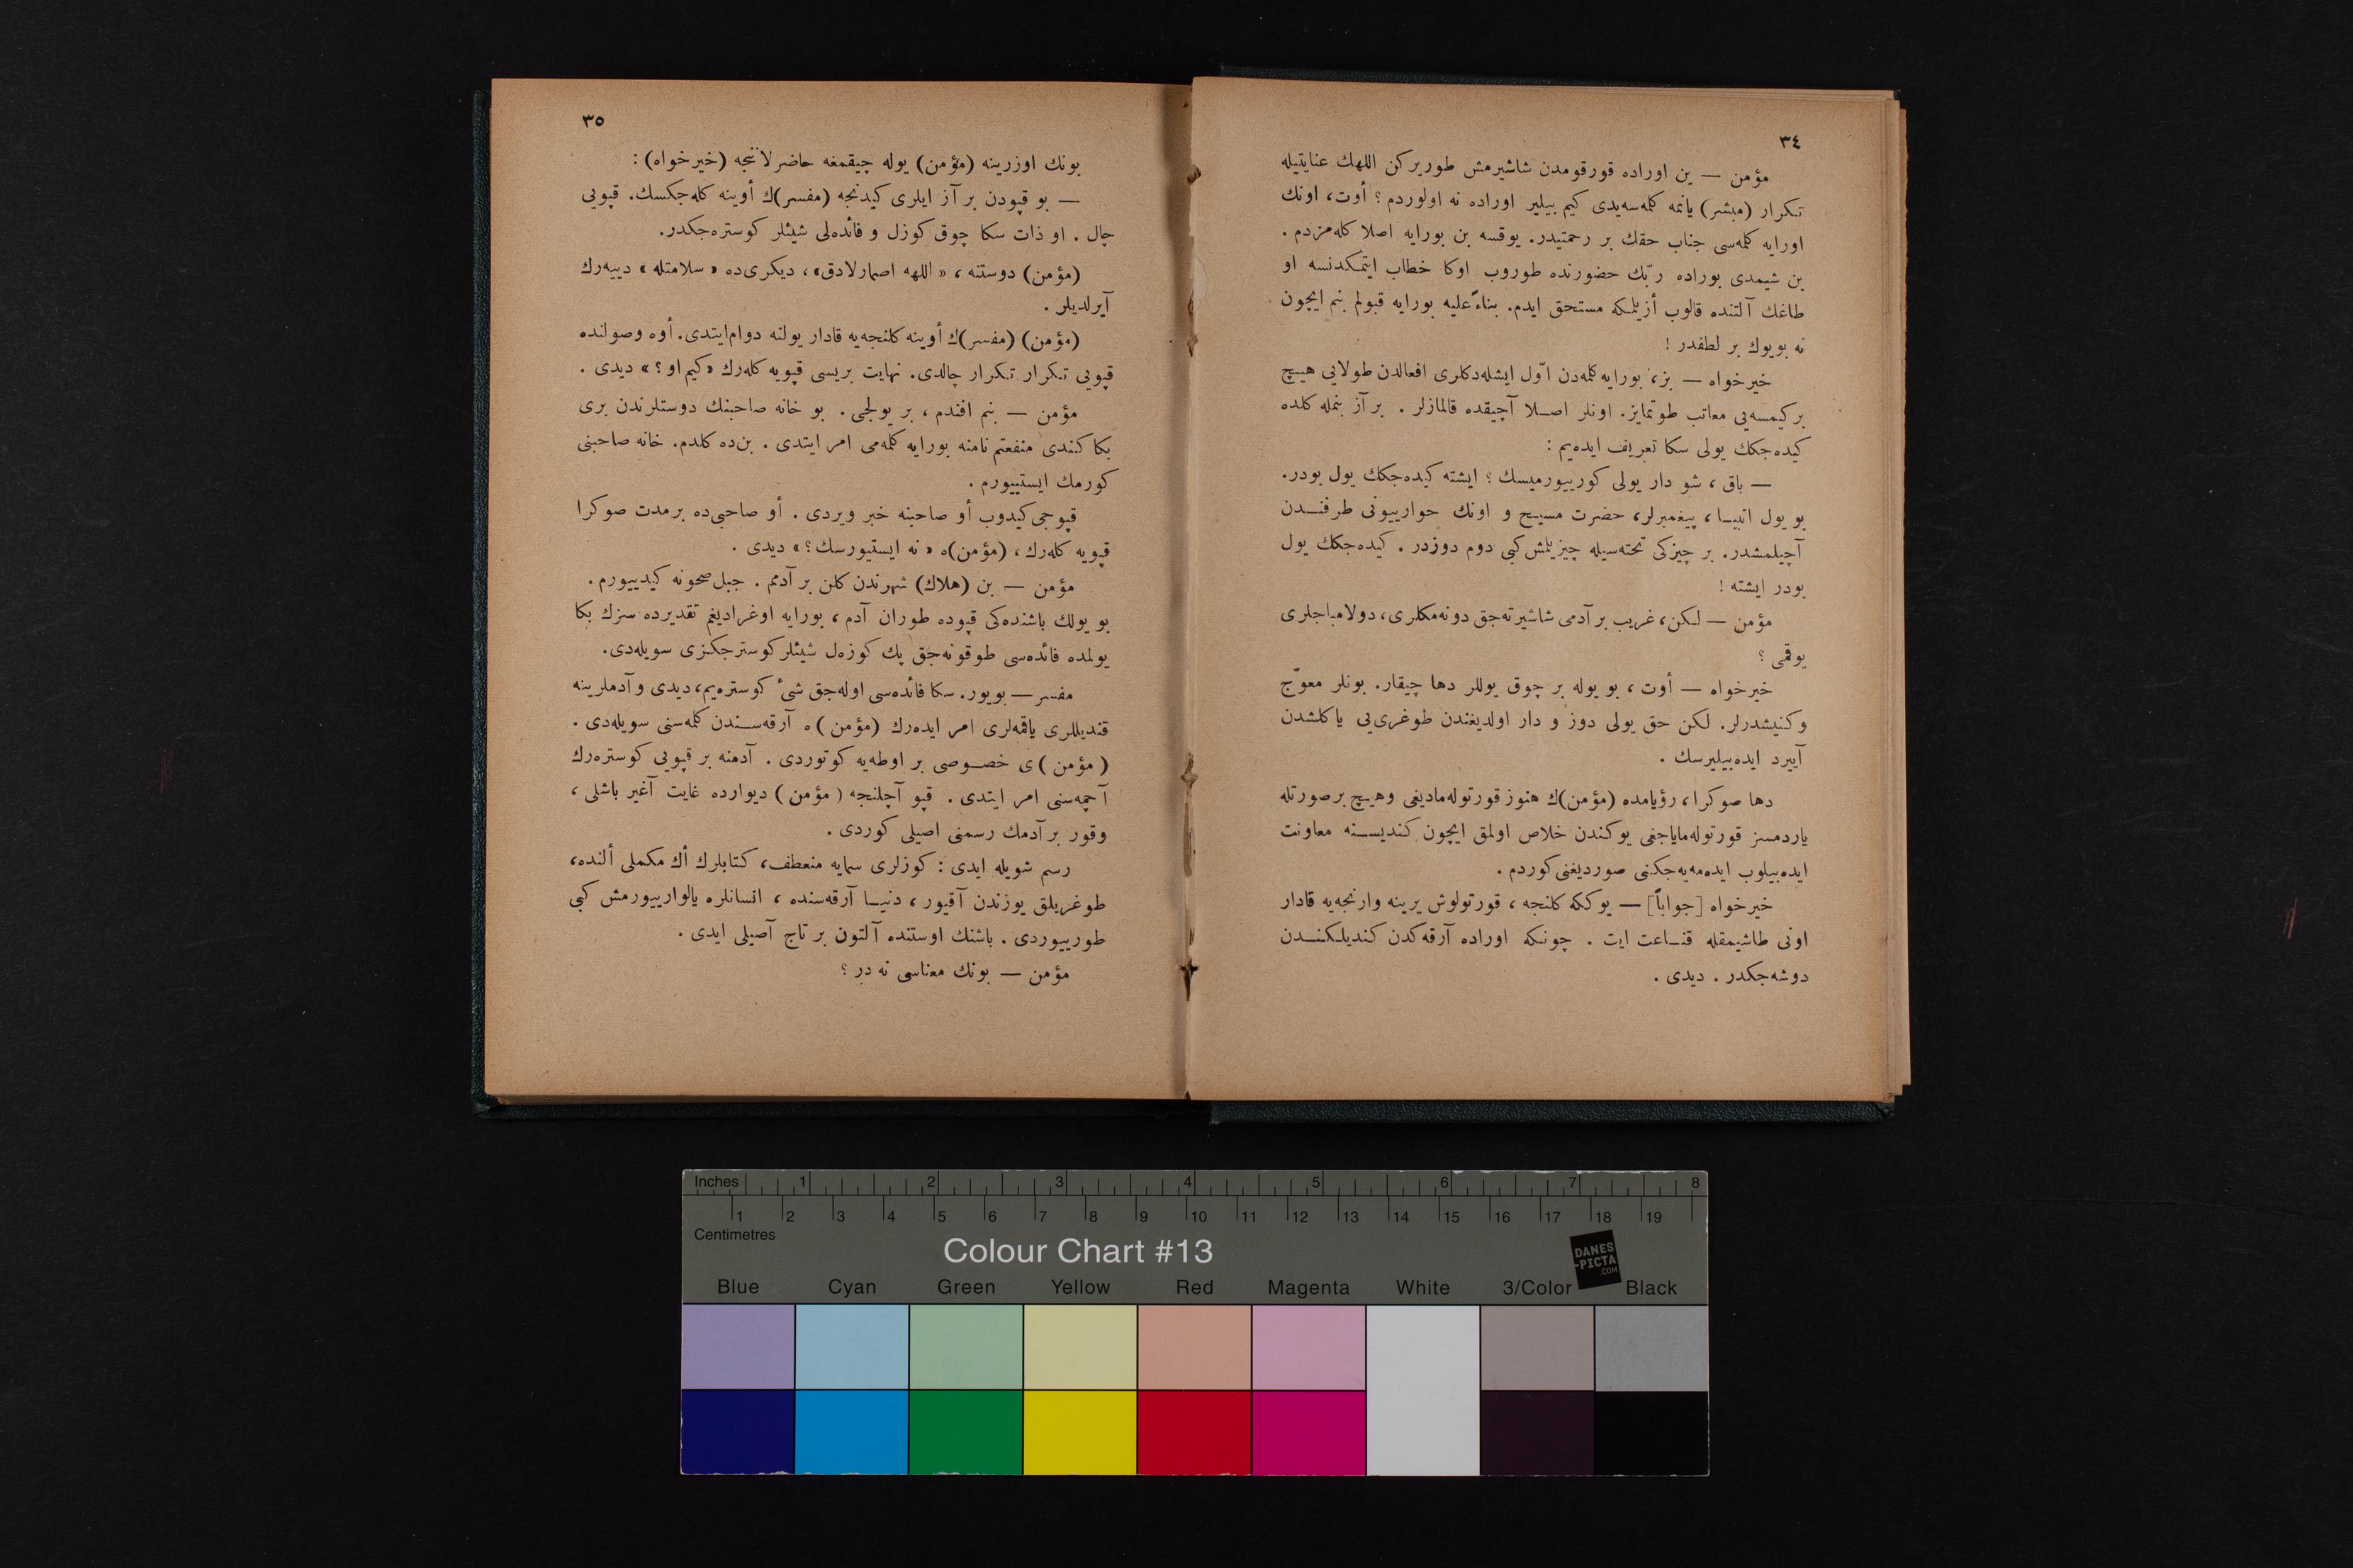 ٣٤
مؤمن — بن اوراده قورقومدن شاشیرمش طوریركن اللهك عنایتیله
تكرار (مبشر) یانمه كلمه‌سه‌یدی كیم بیلیر اوراده نه اولوردم؟ أوت، اونك
اورایه كلمه‌سی جناب حقك بر رحمتیدر. یوقسه بن بورایه اصلا كله‌مزدم.
بن شیمدی بوراده ربّك حضورنده طوروب اوكا خطاب ایتمكدنسه او
طاغك آلتنده قالوب أزیلمكه مستحق ایدم. بناءً علیه بورایه قبولم بنم ایچون
نه بویوك بر لطفدر!
خیرخواه — بز، بورایه كلمه‌دن اوّل ایشله‌دكلری افعالدن طولایی هیچ
بر كیمسه‌یی معاتب طوتمایز. اونلر اصلا آچیقده قالمازلر. بر آز بنمله كلده
كیده‌جكك یولی سكا تعریف ایده‌یم:
— باق، شو دار یولی كورییورمیسك؟ ایشته كیده‌جكك یول بودر.
بو یول انبیا، پیغمبرلر، حضرت مسیح و اونك حوارییونی طرفندن
آچیلمشدر. بر چیزكی تخته‌سیله چیزیلمش كبی دوم دوزدر. كیده‌جكك یول
بودر ایشته!
مؤمن — لكن، غریب بر آدمی شاشیرته‌جق دونه‌مكلری، دولامباجلری
یوقمی؟
خیرخواه — أوت، بو یوله بر چوق یوللر دها چیقار. بونلر معوّج
وكنیشدرلر. لكن حق یولی دوز و دار اولدیغندن طوغری‌یی یاكلشدن
آییرد ایده‌بیلیرسك.
دها صوكرا، رؤیامده (مؤمن)ك هنوز قورتوله‌مادیغی وهیچ برصورتله
یاردمسز قورتوله‌مایاجغی یوكندن خلاص اولمق ایچون كندیسنه معاونت
ایده‌بیلوب ایده‌مه‌یه‌جكنی صوردیغنی كوردم.
خیرخواه [جواباً] — یوككه كلنجه، قورتولوش یرینه وارنجه‌یه قادار
اونی طاشیمقله قناعت ایت. چونكه اوراده آرقه‌كدن كندیلكندن
دوشه‌جكدر. دیدی.
٣٥
بونك اوزرینه (مؤمن) یوله چیقمغه حاضرلاننجه (خیرخواه):
— بو قپودن بر آز ایلری كیدنجه (مفسر)ك أوینه كله‌جكسك. قپویی
چال. او ذات سكا چوق كوزل و فائده‌لی شیئلر كوستره‌جكدر.
(مؤمن) دوستنه، «اللهه اصمارلادق»، دیكری‌ده «سلامتله» دییه‌رك
آیرلدیلر.
(مؤمن) (مفسر)ك أوینه كلنجه‌یه قادار یولنه دوام‌ایتدی. أوه وصولنده
قپویی تكرار تكرار چالدی. نهایت بریسی قپویه كله‌رك «كیم او؟» دیدی.
مؤمن — بنم افندم، بر یولجی. بو خانه صاحبنك دوستلرندن بری
بكا كندی منفعتم نامنه بورایه كلمه‌می امر ایتدی. بن‌ده كلدم. خانه صاحبنی
كورمك ایستییورم.
قپوجی كیدوب أو صاحبنه خبر ویردی. أو صاحبی‌ده برمدت صوكرا
قپویه كله‌رك، (مؤمن)ه «نه ایستیورسك؟» دیدی.
مؤمن — بن (هلاك) شهرندن كلن بر آدمم. جبل صحونه كیدییورم.
بو یولك باشنده‌كی قپوده طوران آدم، بورایه اوغرادیغم تقدیرده سزك بكا
یولمده فائده‌سی طوقونه‌جق پك كوزه‌ل شیئلر كوسترجكزی سویله‌دی.
مفسر — بویور. سكا فائده‌سی اوله‌جق شیٔ كوستره‌یم، دیدی وآدملرینه
قندیللری یاقمه‌لری امر ایده‌رك (مؤمن)ه آرقه‌سندن كلمه‌سنی سویله‌دی.
(مؤمن)ی خصوصی بر اوطه‌یه كوتوردی. آدمنه بر قپویی كوستره‌رك
آچمه‌سنی امر ایتدی. قپو آچلنجه (مؤمن) دیوارده غایت آغیر باشلی،
وقور بر آدمك رسمنی اصیلی كوردی.
رسم شویله ایدی: كوزلری سمایه منعطف، كتابلرك أك مكملی ألنده،
طوغریلق یوزندن آقیور، دنیا آرقه‌سنده، انسانلره یالوارییورمش كبی
طورییوردی. باشنك اوستنده آلتون بر تاج آصیلی ایدی.
مؤمن — بونك معناسی نه در؟
Inches 1 2 3 4 5 6 7 8
1 2 3 4 5 6 7 8 9 10 11 12 13 14 15 16 17 18 19
Centimetres
Colour Chart #13
DANES
-PICTA
.COM
Blue Cyan Green Yellow Red Magenta White 3/Color Black